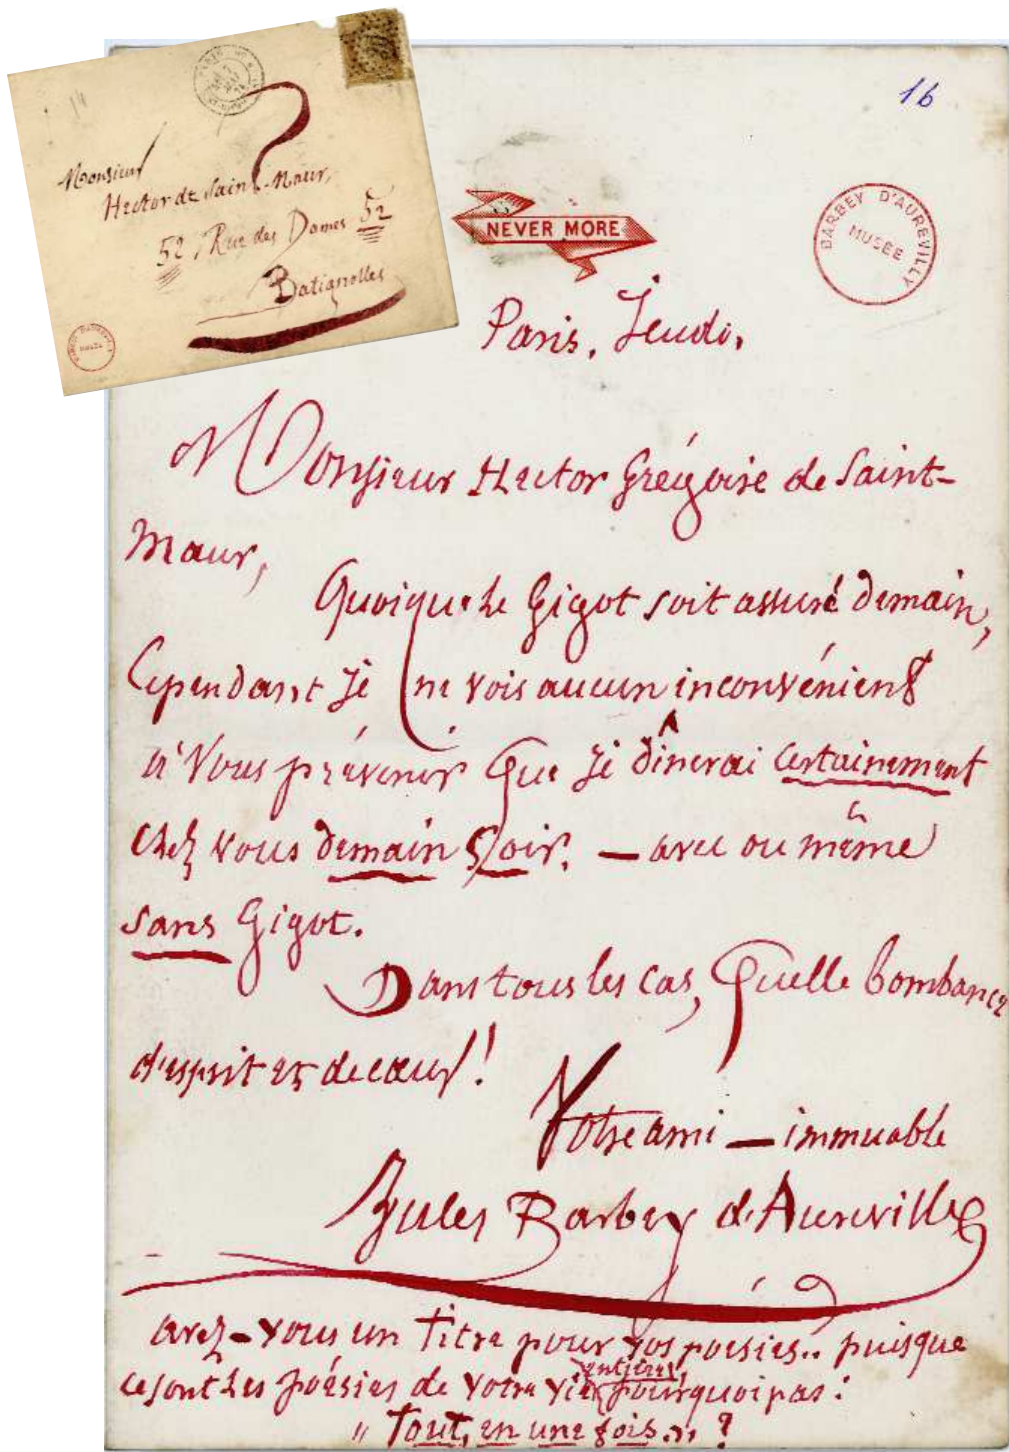 Monsieur
Hector de Saint-Maur,
52, Rue des Dames 52
Batignolles
16
NEVER MORE
BARBEY D'AUREVILLY
MUSÉE
Paris, Jeudi,
Monsieur Hector Grégoire de Saint-
Maur,
Quoique le Gigot soit assuré demain,
Cependant je ne vois aucun inconvénient
à Vous prévenir Que je dînerai certainement
chez vous demain soir, — avec ou même
sans Gigot.
Dans tous les cas, Quelle bombance
d'esprit et de cœur!
Votre ami — immuable
Jules Barbey d'Aurevilly
avez-vous un titre pour vos poésies.. puisque
ce sont les poésies de votre vie entière, pourquoi pas:
" Tout, en une fois.,, ?